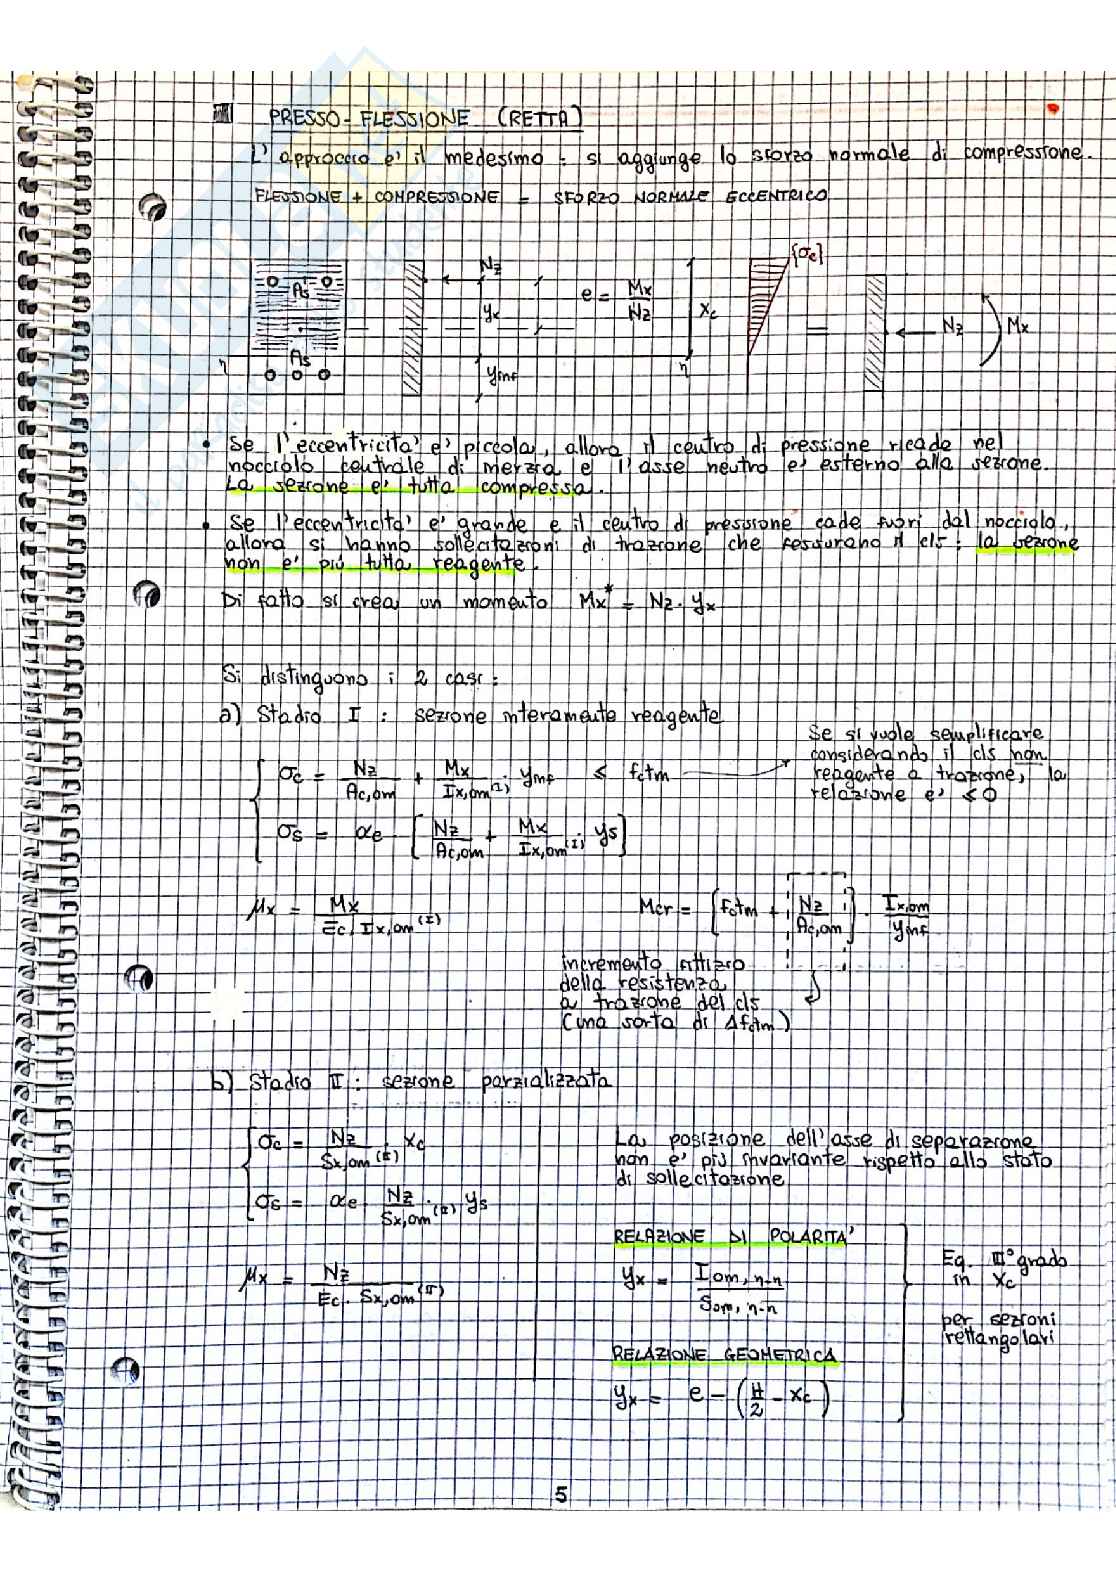 PRESSO-FLESSIONE (RETTA)
L'approccio e' il medesimo: si aggiunge lo sforzo normale di compressione.
FLESSIONE + COMPRESSIONE = SFORZO NORMALE ECCENTRICO
As'
As
η
Nz
yx
yinf
e = Mx / Nz
xc
η
{σc}
=
Nz
Mx
• Se l'eccentricita' e' piccola, allora il centro di pressione ricade nel
nocciolo centrale di inerzia e l'asse neutro e' esterno alla sezione.
La sezione e' tutta compressa.
• Se l'eccentricita' e' grande e il centro di pressione cade fuori dal nocciolo,
allora si hanno sollecitazioni di trazione che fessurano il cls: la sezione
non e' più tutta reagente.
Di fatto si crea un momento Mx* = Nz · yx
Si distinguono i 2 casi:
a) Stadio I : sezione interamente reagente
σc = Nz / Ac,om + Mx / Ix,om(I) · yinf ≤ fctm
Se si vuole semplificare
considerando il cls non
reagente a trazione, la
relazione e' ≤0
σs = αe [Nz / Ac,om + Mx / Ix,om(I) · ys]
μx = Mx / Ec · Ix,om(I)
Mcr = [fctm + Nz / Ac,om] · Ix,om / yinf
incremento fittizio
della resistenza
a trazione del cls
(una sorta di Δfctm)
b) Stadio II : sezione parzializzata
σc = Nz / Sx,om(II) · xc
σs = αe · Nz / Sx,om(II) · ys
μx = Nz / Ec · Sx,om(II)
La posizione dell'asse di separazione
non e' più invariante rispetto allo stato
di sollecitazione
RELAZIONE DI POLARITA'
yx = Iom, n-n / Som, n-n
RELAZIONE GEOMETRICA
yx = e - (H/2 - xc)
Eq. II° grado
in xc
per sezioni
rettangolari
5